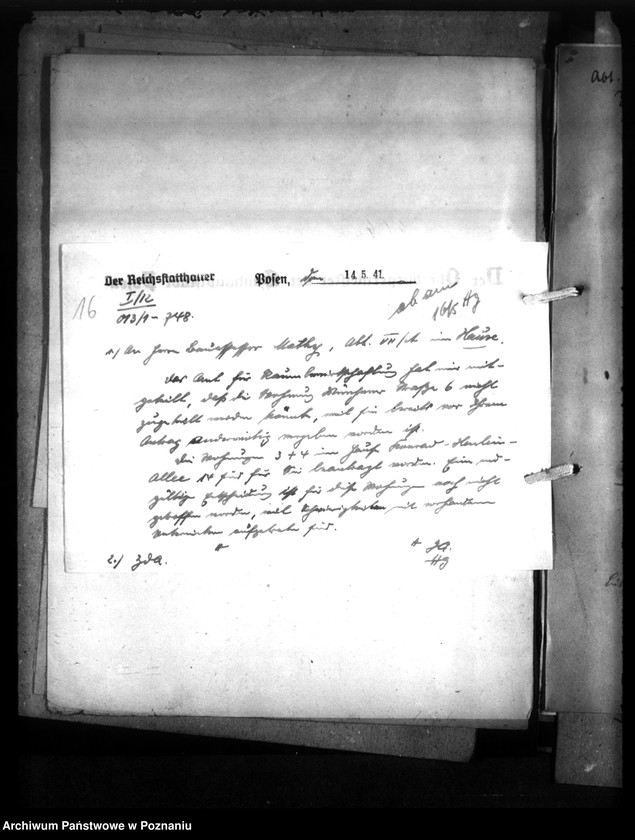 Der Reichsstatthalter Posen, den 14.5.41.
16
I/12
013/1 - 748.
ab am
16/5 Hg
1./ An Herrn Bauassessor Mathy, Abt. VII/A im Hause.
Das Amt für Raumbewirtschaftung hat mir mit-
geteilt, daß die Wohnung Münchener Straße 6 nicht
zugeteilt werden könnte, weil sie bereits vor Ihrem
Antrag anderweitig vergeben worden ist.
Die Wohnungen 3 + 4 im Hause Konrad-Henlein-
Allee 14 sind für Sie beantragt worden. Eine end-
gültige Entscheidung ist für diese Wohnungen noch nicht
getroffen worden, weil Schwierigkeiten mit
aufgetreten sind.
2./ ZdA.
J.A.
Hg
Abt.
Archiwum Państwowe w Poznaniu